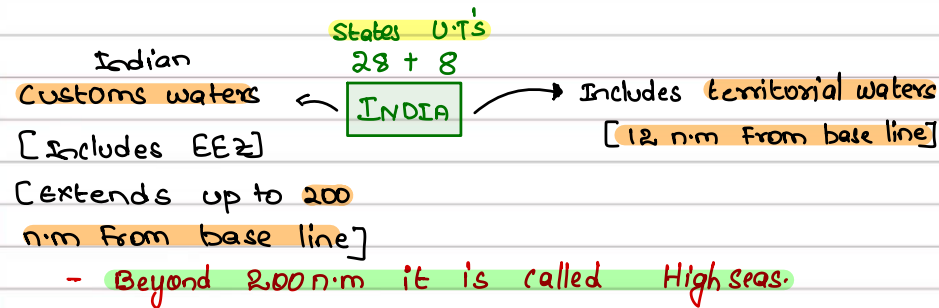 States U.T's
28 + 8
INDIA
Indian
Customs waters
[Includes EEZ]
[Extends up to 200
n.m From base line]
Includes territorial waters
[12 n.m From base line]
- Beyond 200 n.m it is called High seas.